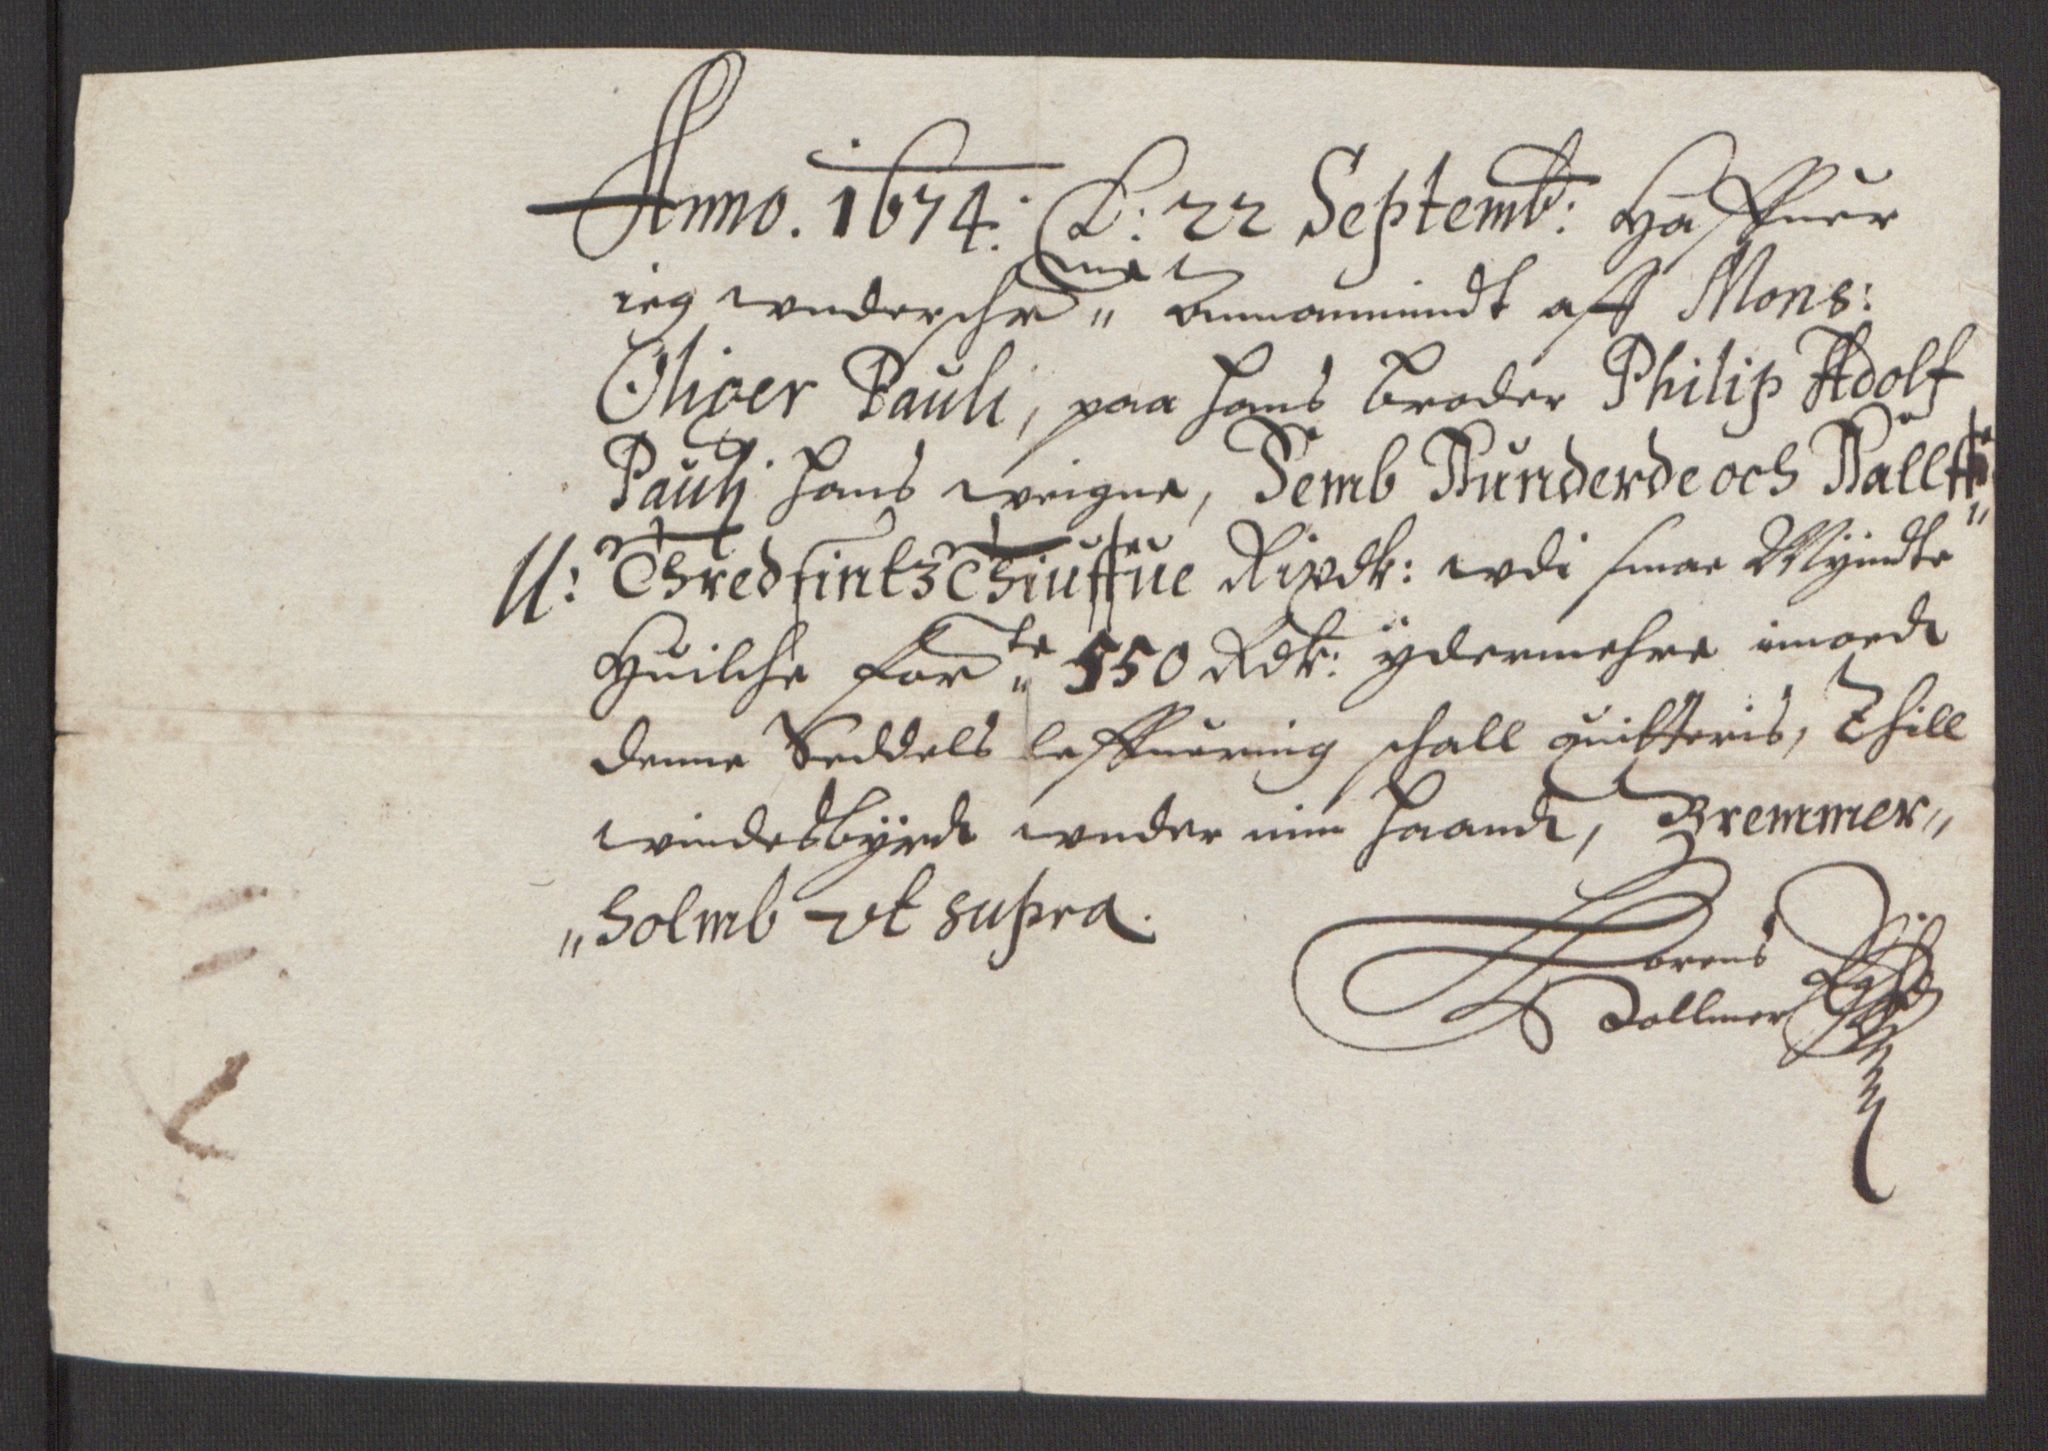 Anno. 1674: D: 22 Septemb: Haffuer
ieg wnderschr" net annammindt aff Mons:
Oliger Pauli, paa hans broder Philip Adolf
Pauli hans weigne, Femb Hunderde och Hallff"
H: Thredsintz Thiuffue Rixdr: wdi smae Myndte
Huilche for"te 550 Rdr: ydermehre imoed
denne Seddels leffuering schall quitteris, Thill
windesbyrd wnder min haand, Bremmer"
"holmb vt supra.
Lorens
Vollmer